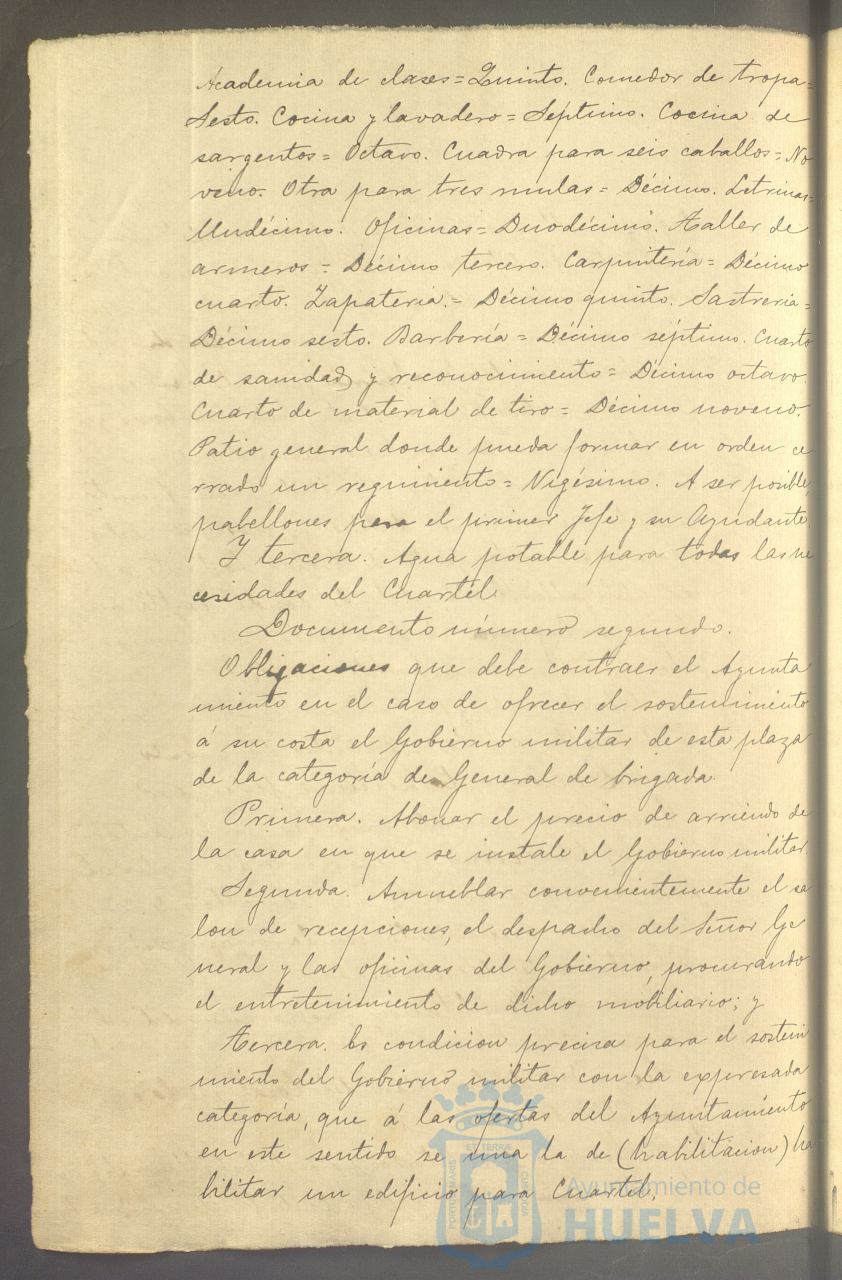 Academia de clases = Quinto. Comedor de tropa =
Sesto. Cocina y lavadero = Séptimo. Cocina de
sargentos = Octavo. Cuadra para seis caballos = No
veno. Otra para tres mulas = Décimo. Letrinas =
Undécimo. Oficinas = Duodécimo. Taller de
armeros = Décimo tercero. Carpintería = Décimo
cuarto. Zapatería. = Décimo quinto. Sastreria =
Décimo sesto. Barbería = Décimo séptimo. Cuarto
de sanidad y reconocimiento = Décimo octavo.
Cuarto de material de tiro = Décimo noveno.
Patio general donde pueda formar en orden ce
rrado un regimiento = Vigésimo. A ser posible,
pabellones para el primer Jefe y su Ayudante
Y tercera. Agua potable para todas las ne
cesidades del Cuartel.
Documento número segundo.
Obligaciones que debe contraer el Ayunta
miento en el caso de ofrecer el sostenimiento
á su costa el Gobierno militar de esta plaza
de la categoría de General de brigada.
Primera. Abonar el precio de arriendo de
la casa en que se instale el Gobierno militar.
Segunda. Amueblar convenientemente el sa
lon de recepciones, el despacho del Señor Ge
neral y las oficinas del Gobierno, procurando
el entretenimiento de dicho mobiliario; y
Tercera. Es condicion precisa para el sosteni
miento del Gobierno militar con la expresada
categoría, que á las ofertas del Ayuntamiento
en este sentido se una la de (habilitacion) ha
bilitar un edificio para Cuartel.
PORTUS MARIS
ET TERRÆ
CUSTODIA
Ayuntamiento de
HUELVA